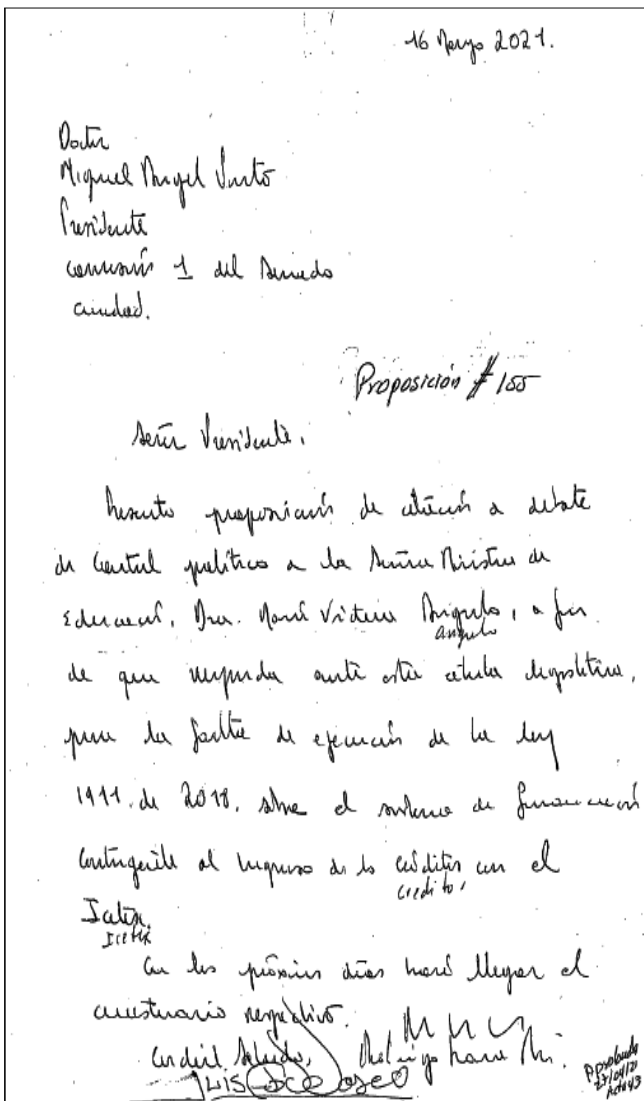 16 Marzo 2021.
Doctor
Miguel Angel Pinto
Presidente
comisión 1 del Senado
ciudad.
Proposición # 155
Señor Presidente.
Presento proposición de citación a debate
de Control político a la Señora Ministra de
Educación, Dra. María Victoria Angulo, a fin
angulo
de que responda ante esta célula legislativa,
para la falta de ejecución de la ley
1911 de 2018, sobre el sistema de financiación
Contingente al Ingreso de los créditos con el
credito,
Icetex
Icetex
En los próximos días haré llegar el
cuestionario respectivo.
Cordial Saludo,
Aprobada
27/04/21
Acta 43